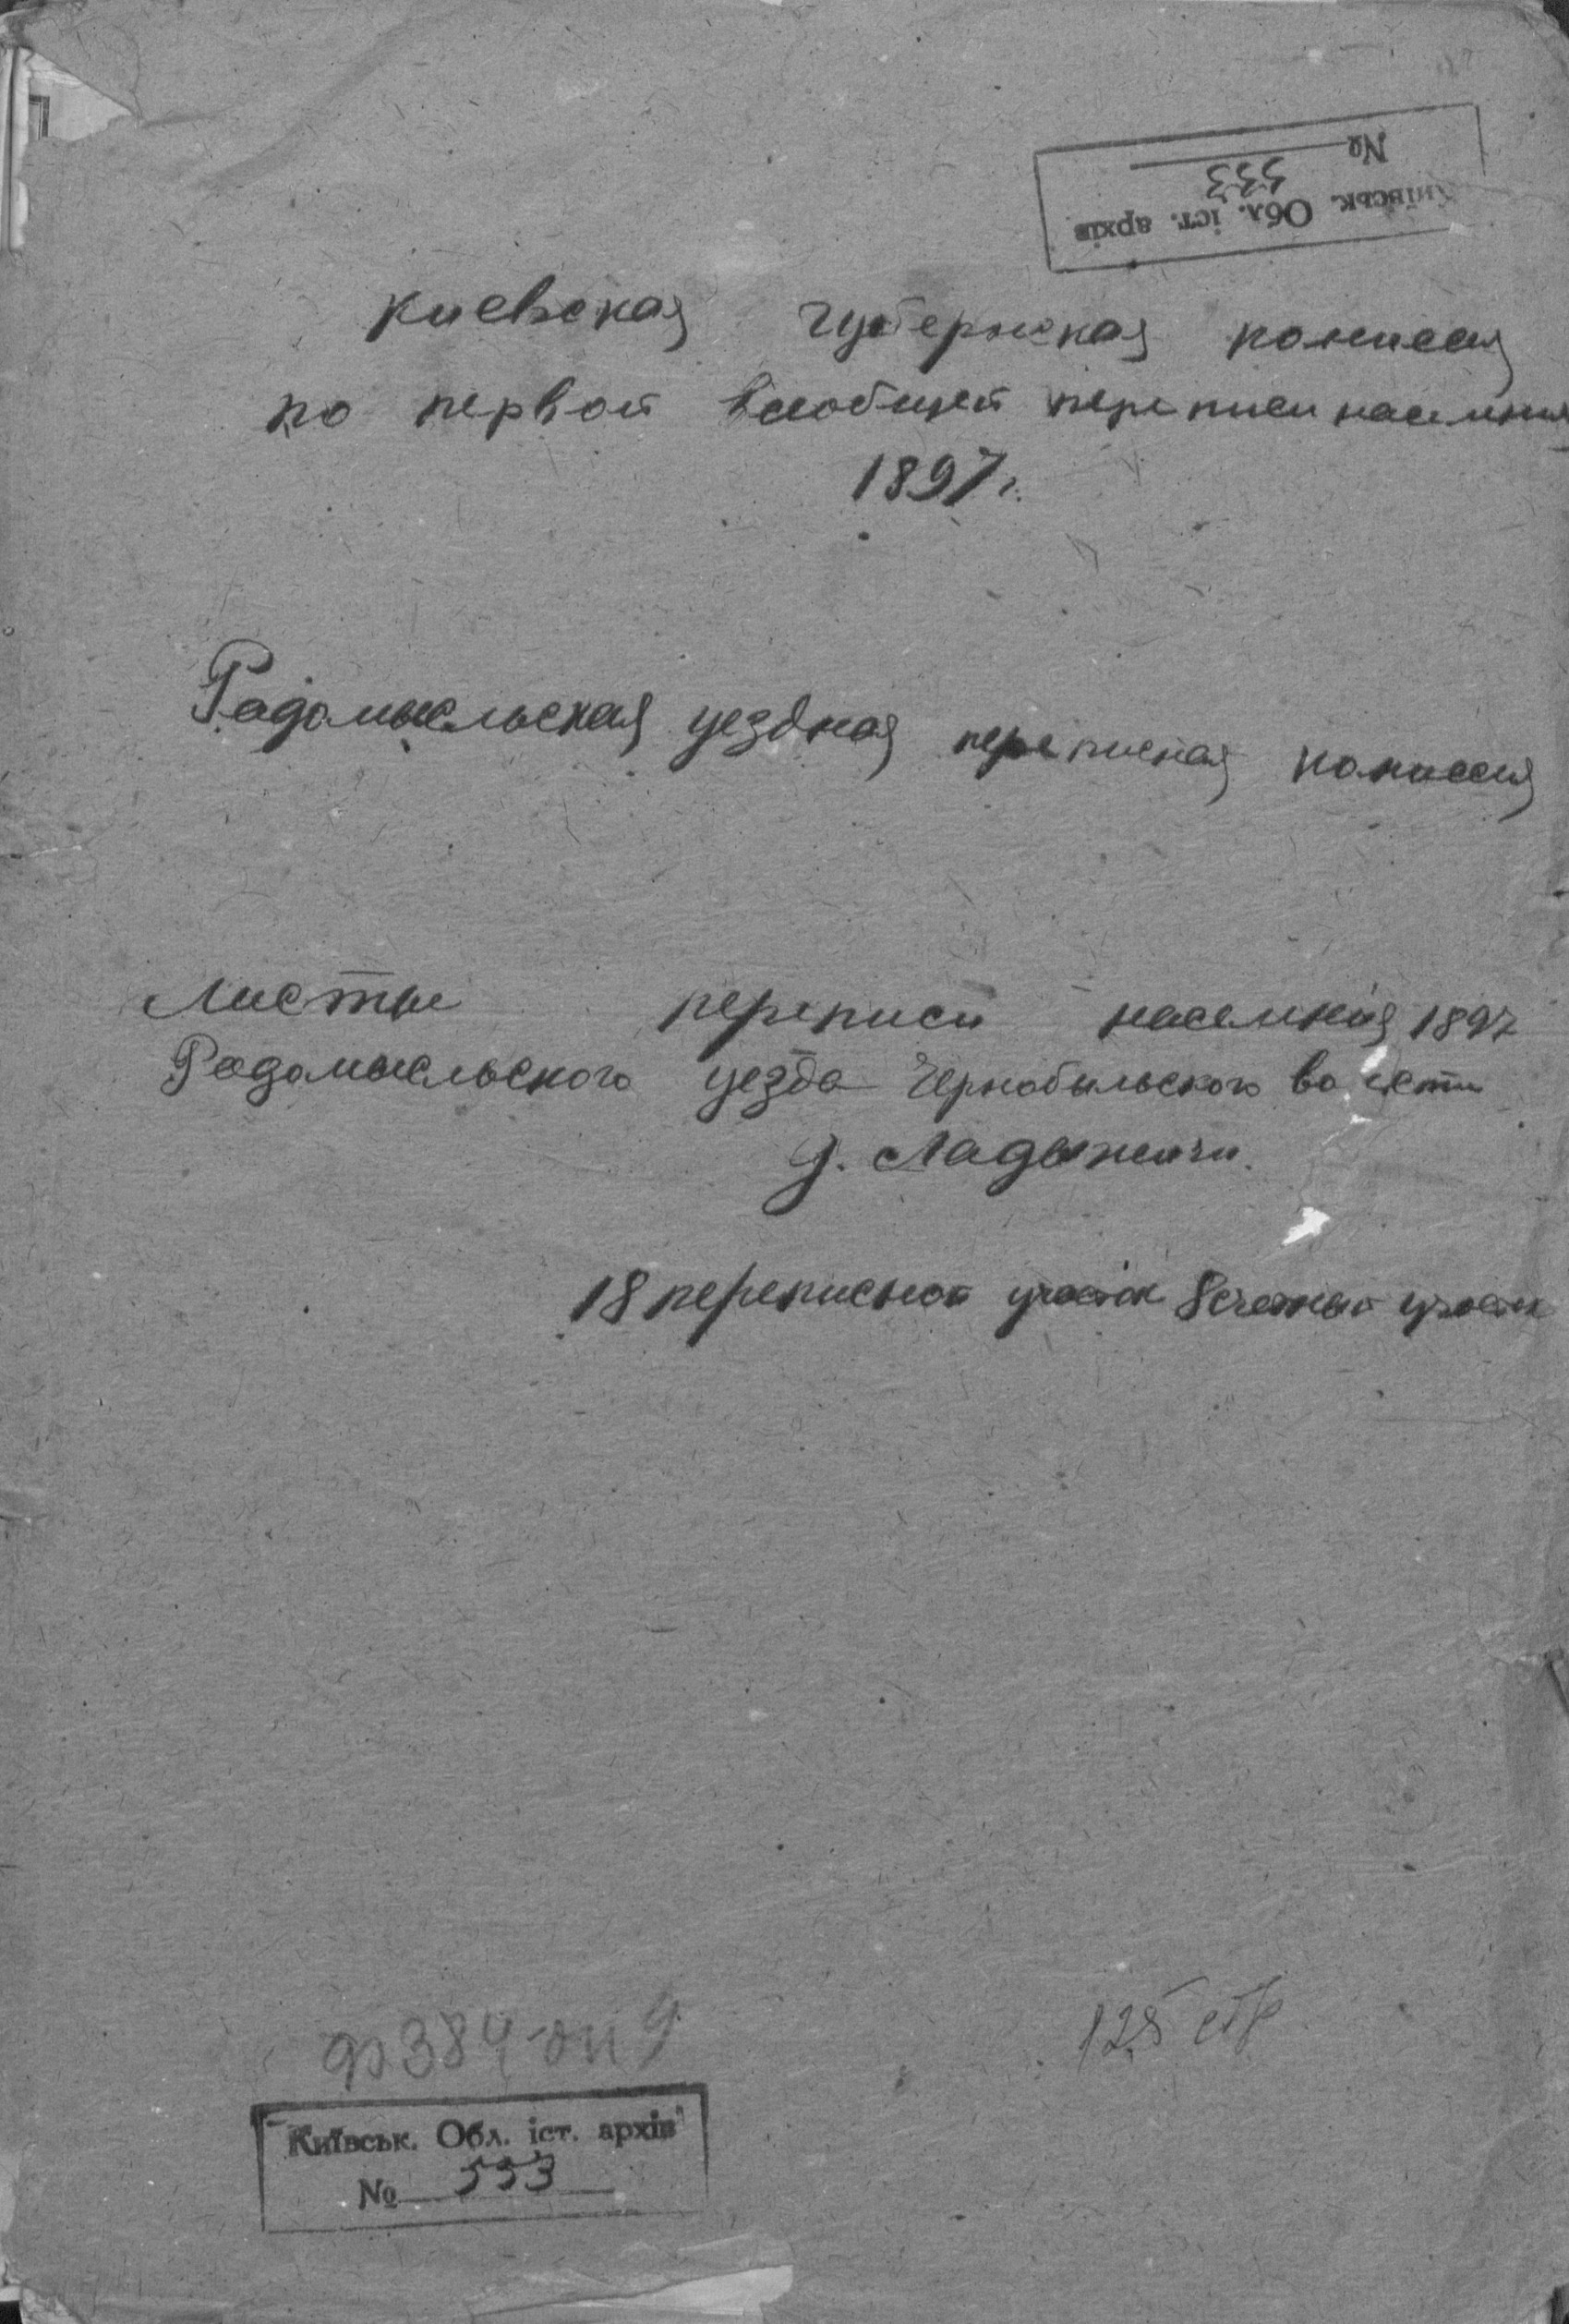 Київськ. Обл. іст. архів
№ 553
Киевская губернская комиссия
по первой всеобщей переписи населения
1897 г.
Радомысльская уездная переписная комиссия
Листы переписи населения 1897
Радомысльского уезда Чернобыльского волости
д. Ладыжичи
18 переписной участок 8 счетный участок
ф 384 оп 9
125 стр
Київськ. Обл. іст. архів
№ 553